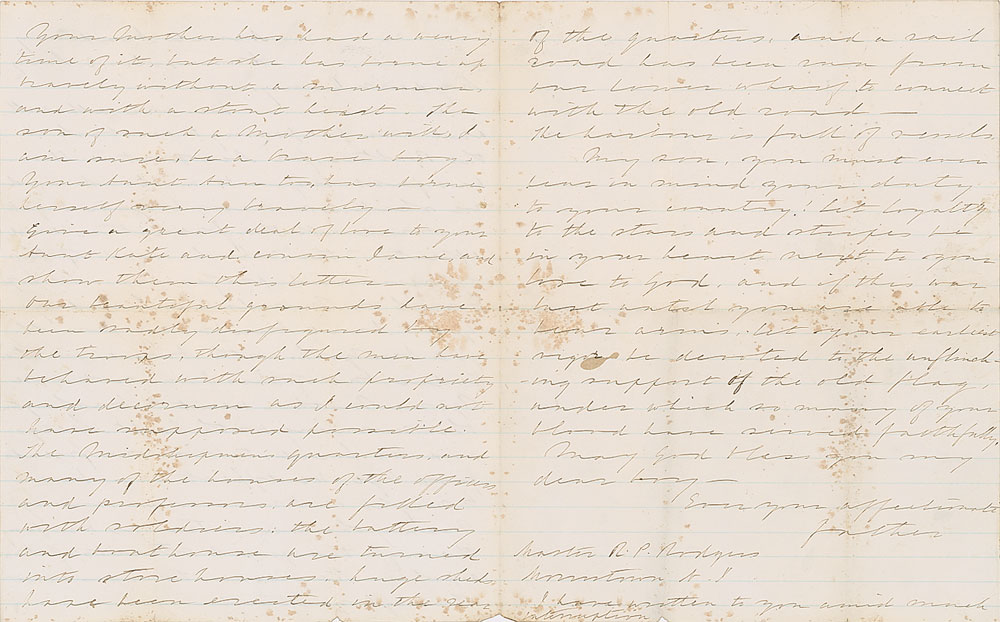 Your Mother has had a weary
time of it, but she has borne up
bravely without a murmur
and with a stout heart. The
son of such a Mother will, I
am sure, be a brave boy.
Your Aunt Ann too, has borne
herself very bravely—
Give a great deal of love to your
Aunt Kate and cousin Jane, and
show them this letter—
Our beautiful grounds have
been sadly disfigured by
the troops, though the men have
behaved with such propriety
and decorum as I could not
have supposed possible.
The Midshipmens quarters, and
many of the houses of the officers
and professors are filled
with soldiers: the battery
and boathouse are turned
into store houses. huge sheds
have been erected in the rear
of the quarters, and a rail
road has been run from
our lower wharf to connect
with the old road—
The harbour is full of vessels
My son, you must ever
bear in mind your duty
to your country! Let loyalty
to the stars and stripes be
in your heart next to your
love to God, and if the war
last until you are able to
bear arms, let your earliest
vigor be devoted to the unflinch-
-ing support of the old flag,
under which so many of your
blood have served faithfully
May God bless you my
dear boy—
Ever your affectionate
father
Master R. P. Rodgers
Morristown N. J.
I have written to you amid much
interruption